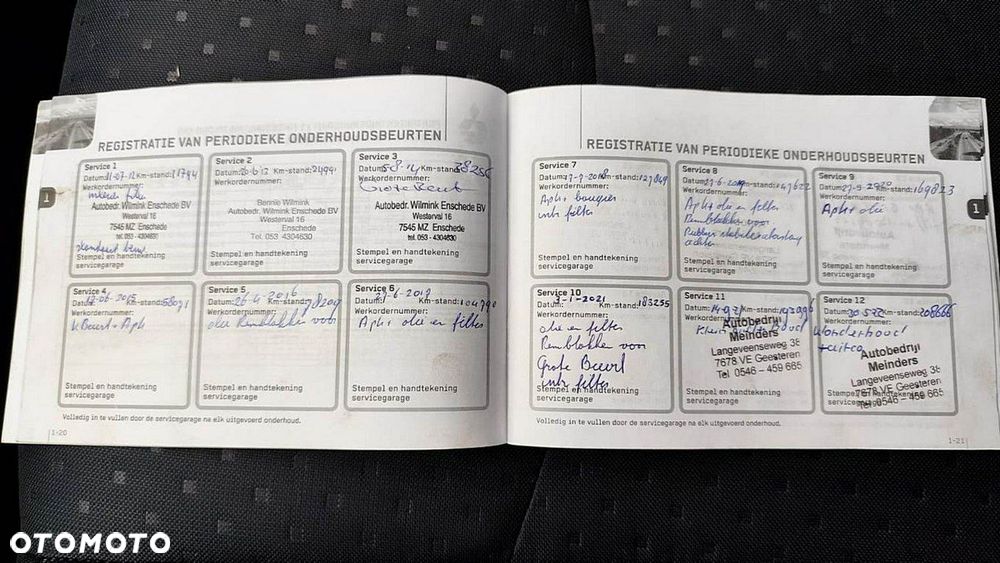 REGISTRATIE VAN PERIODIEKE ONDERHOUDSBEURTEN
Service 1
Datum: 11-07-12 Km-stand: 11794
Werkordernummer:
Autobedr. Wilmink Enschede BV
Westerval 16
7545 MZ Enschede
tel. 053 - 4304630
Stempel en handtekening
servicegarage
Service 2
Datum: Km-stand:
Werkordernummer:
Bennie Wilmink
Autobedr. Wilmink Enschede BV
Westerval 16
Enschede
Tel. 053 4304630
Stempel en handtekening
servicegarage
Service 3
Datum: 5-8-14 Km-stand: 38256
Werkordernummer:
Grote Beurt
Autobedr. Wilmink Enschede BV
Westerval 16
7545 MZ Enschede
tel. 053 - 4304630
Stempel en handtekening
servicegarage
Service 4
Datum: 06-2015 Km-stand: 58071
Werkordernummer:
k Beurt + Apk
Stempel en handtekening
servicegarage
Service 5
Datum: 26-4-2016 Km-stand: 78209
Werkordernummer:
olie Remblokken voor
Stempel en handtekening
servicegarage
Service 6
Datum: -6-2017 Km-stand: 104790
Werkordernummer:
Apk + olie en filter
Stempel en handtekening
servicegarage
Volledig in te vullen door de servicegarage na elk uitgevoerd onderhoud.
1-20
REGISTRATIE VAN PERIODIEKE ONDERHOUDSBEURTEN
Service 7
Datum: -2018 Km-stand: 127849
Werkordernummer:
Apk bougies
intr filter
Stempel en handtekening
servicegarage
Service 8
Datum: 27-6-2019 Km-stand: 147622
Werkordernummer:
Apk + olie en filter
Remblokken voor
achter
Stempel en handtekening
servicegarage
Service 9
Datum: 27-5-2020 Km-stand: 169823
Werkordernummer:
Apk + olie
Stempel en handtekening
servicegarage
Service 10
Datum: 3-1-2021 Km-stand: 183255
Werkordernummer:
olie en filter
Remblokken voor
Grote Beurt
intr filter
Stempel en handtekening
servicegarage
Service 11
Datum: 14-9-21 Km-stand:
Werkordernummer:
Autobedrijf
Meinders
Langeveenseweg 38
7678 VE Geesteren
Tel 0546 - 459 665
Stempel en handtekening
servicegarage
Service 12
Datum: 30-5-22 Km-stand: 208666
Werkordernummer:
Autobedrijf
Meinders
Langeveenseweg 38
7678 VE Geesteren
Tel 0546 - 459 665
Stempel en handtekening
servicegarage
Volledig in te vullen door de servicegarage na elk uitgevoerd onderhoud.
1-21
1
1
OTOMOTO